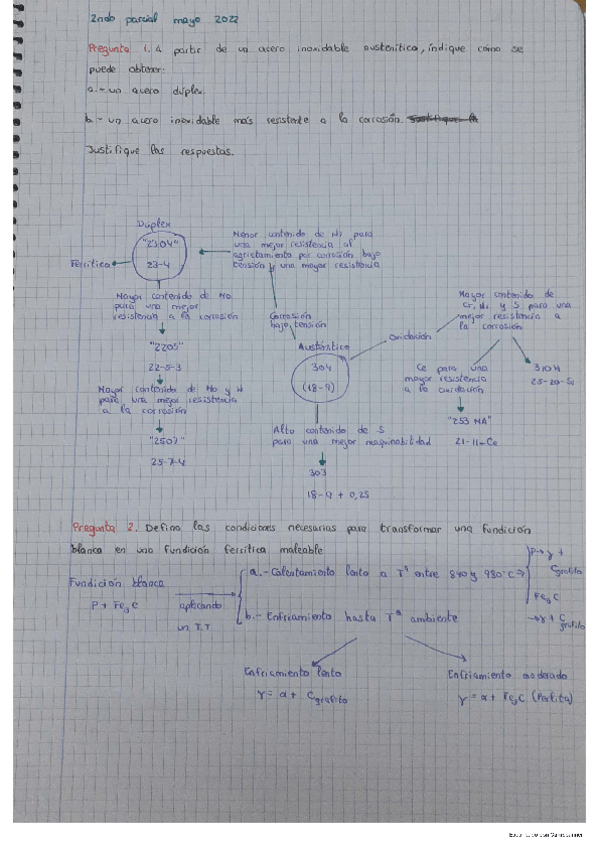 2ndo parcial mayo 2022
Pregunta 1. A partir de un acero inoxidable austenítico, indique cómo se
puede obtener:
a.- un acero dúplex.
b.- un acero inoxidable más resistente a la corrosión.
Justifique las respuestas.
Duplex
"2304"
23-4
Ferrítica
Menor contenido de Ni para
una mejor resistencia al
agrietamiento por corrosión bajo
tensión y una mayor resistencia
Mayor contenido de Mo
para una mejor
resistencia a la corrosión
"2205"
22-5-3
Mayor contenido de Mo y N
para una mejor resistencia
a la corrosión
"2507"
25-7-4
Corrosión
bajo tensión
Austenítico
304
(18-9)
Alto contenido de S
para una mejor maquinabilidad
303
18-9 + 0,25
Oxidación
Mayor contenido de
Cr, Ni y S para una
mejor resistencia a
la corrosión
Ce para una
mayor resistencia
a la oxidación
"253 MA"
21-11-Ce
310H
25-20-Si
Pregunta 2. Defina las condiciones necesarias para transformar una fundición
blanca en una fundición ferrítica maleable
Fundición blanca
P + Fe3C
aplicando
un T.T
a.- Calentamiento lento a Tª entre 840 y 980°C ⇒
P → γ +
Cgrafito
Fe3C
→ γ + C
grafito
b.- Enfriamiento hasta Tª ambiente
Enfriamiento lento
γ = α + Cgrafito
Enfriamiento moderado
γ = α + Fe3C (Perlita)